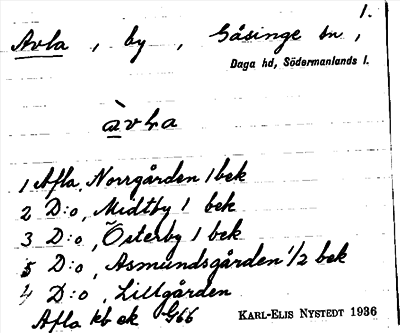 1.
Avla, by, Gåsinge sn,
Daga hd, Södermanlands l.
àvla
1 Afla, Norrgården 1 bek
2 D:o, Midtby 1 bek
3 D:o, Österby 1 bek
5 D:o, Asmundsgården 1/2 bek
4 D:o, Lillgården
Afla kb ek G66
KARL-ELIS NYSTEDT 1936